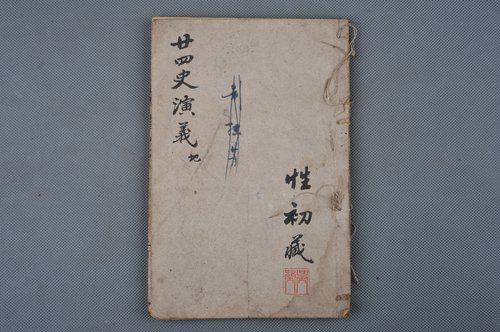 廿四史演義 地
性初藏